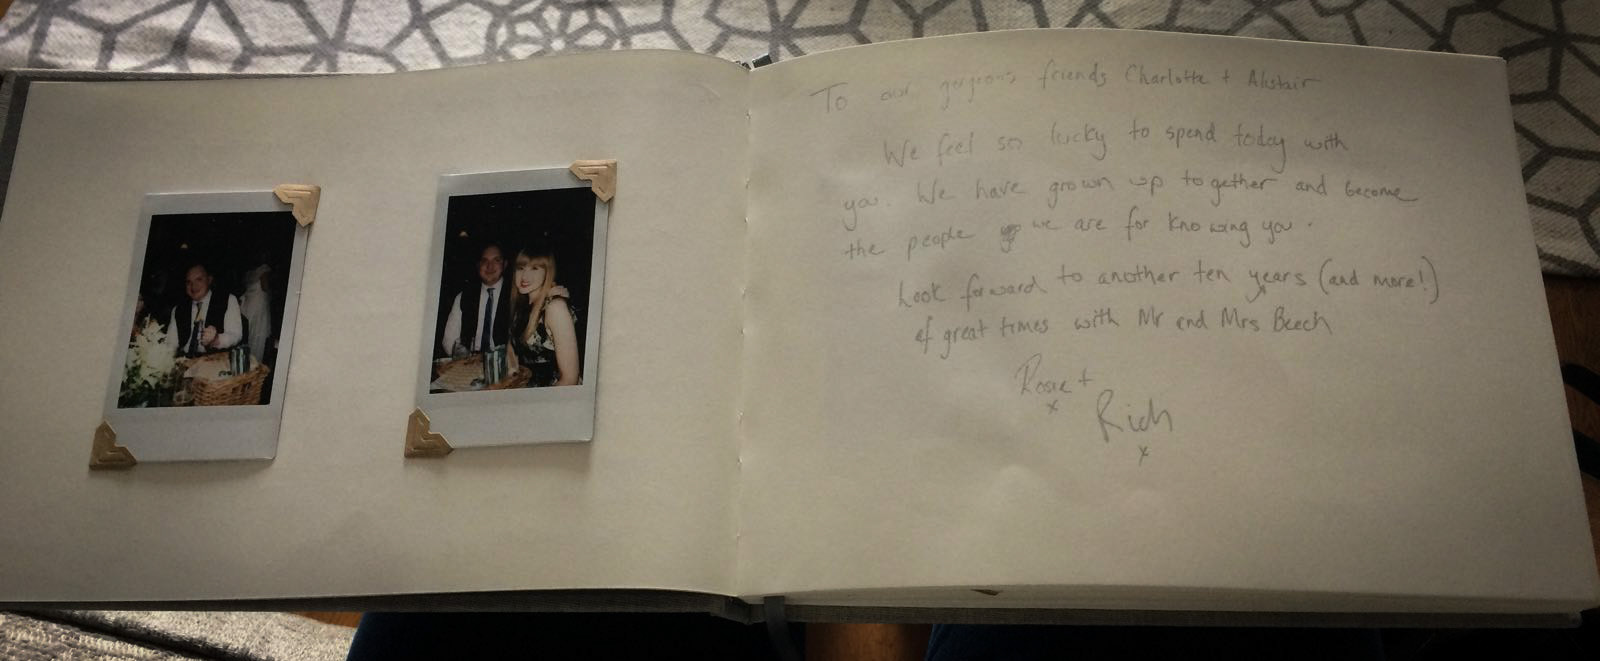 To our gorgeous friends Charlotte + Alistair
We feel so lucky to spend today with
you. We have grown up together and become
the people we are for knowing you.
Look forward to another ten years (and more!)
of great times with Mr and Mrs Beech
Rosie +
x
Rich
x